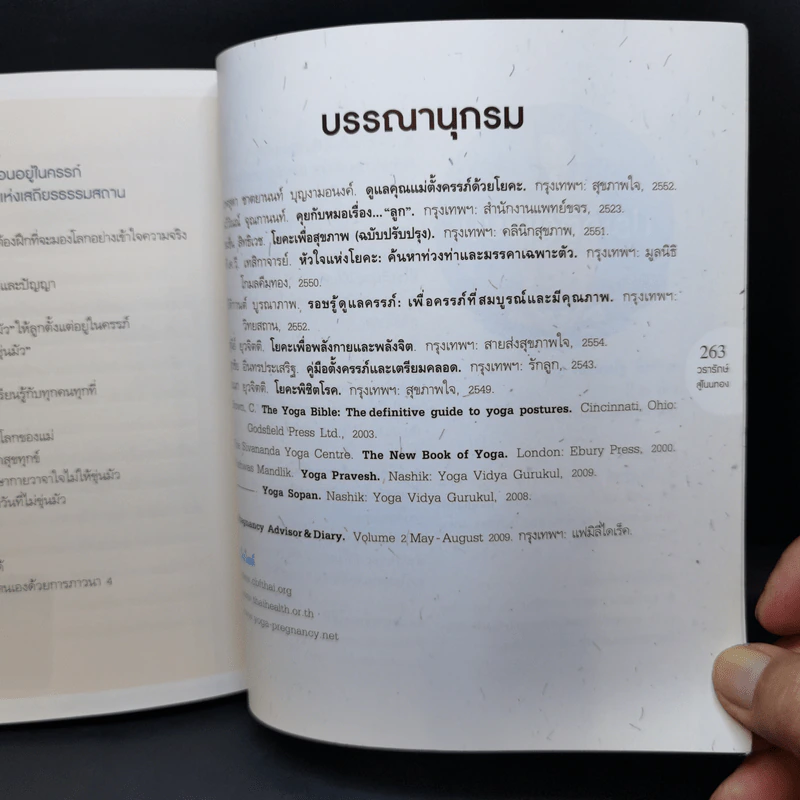 อนอยู่ในครรภ์
แห่งเสถียรธรรมสถาน
ต้องฝึกที่จะมองโลกอย่างเข้าใจความจริง
และปัญญา
มัว" ให้ลูกตั้งแต่อยู่ในครรภ์
ขุ่นมัว"
เรียนรู้กับทุกคนทุกที่
โลกของแม่
าสุขทุกข์
ษากายวาจาใจไม่ให้ขุ่นมัว
วันที่ไม่ขุ่นมัว
นเองด้วยการภาวนา 4
บรรณานุกรม
ชาตยานนท์ บุญงามอนงค์. ดูแลคุณแม่ตั้งครรภ์ด้วยโยคะ. กรุงเทพฯ: สุขภาพใจ, 2552.
จุณฑานนท์. คุยกับหมอเรื่อง..."ลูก". กรุงเทพฯ: สำนักงานแพทย์ขจร, 2523.
สิทธิเวช. โยคะเพื่อสุขภาพ (ฉบับปรับปรุง). กรุงเทพฯ: คลินิกสุขภาพ, 2551.
เทสิกาจารย์. หัวใจแห่งโยคะ: ค้นหาท่วงท่าและมรรคาเฉพาะตัว. กรุงเทพฯ: มูลนิธิ
โกมลคีมทอง, 2550.
บูรณาภาพ. รอบรู้ดูแลครรภ์: เพื่อครรภ์ที่สมบูรณ์และมีคุณภาพ. กรุงเทพฯ:
วิทยสถาน, 2552.
ยุวจิตติ. โยคะเพื่อพลังกายและพลังจิต. กรุงเทพฯ: สายส่งสุขภาพใจ, 2554.
อินทรประเสริฐ. คู่มือตั้งครรภ์และเตรียมคลอด. กรุงเทพฯ: รักลูก, 2543.
ยุวจิตติ. โยคะพิชิตโรค. กรุงเทพฯ: สุขภาพใจ, 2549.
C. The Yoga Bible: The definitive guide to yoga postures. Cincinnati, Ohio:
Godsfield Press Ltd., 2003.
Sivananda Yoga Centre. The New Book of Yoga. London: Ebury Press, 2000.
Mandlik. Yoga Pravesh. Nashik: Yoga Vidya Gurukul, 2009.
Yoga Sopan. Nashik: Yoga Vidya Gurukul, 2008.
Pregnancy Advisor & Diary. Volume 2 May - August 2009. กรุงเทพฯ: แฟมิลี่ไดเร็ค.
thaihealth.or.th
yoga-pregnancy.net
263
วรารักษ์
สู่โนนทอง